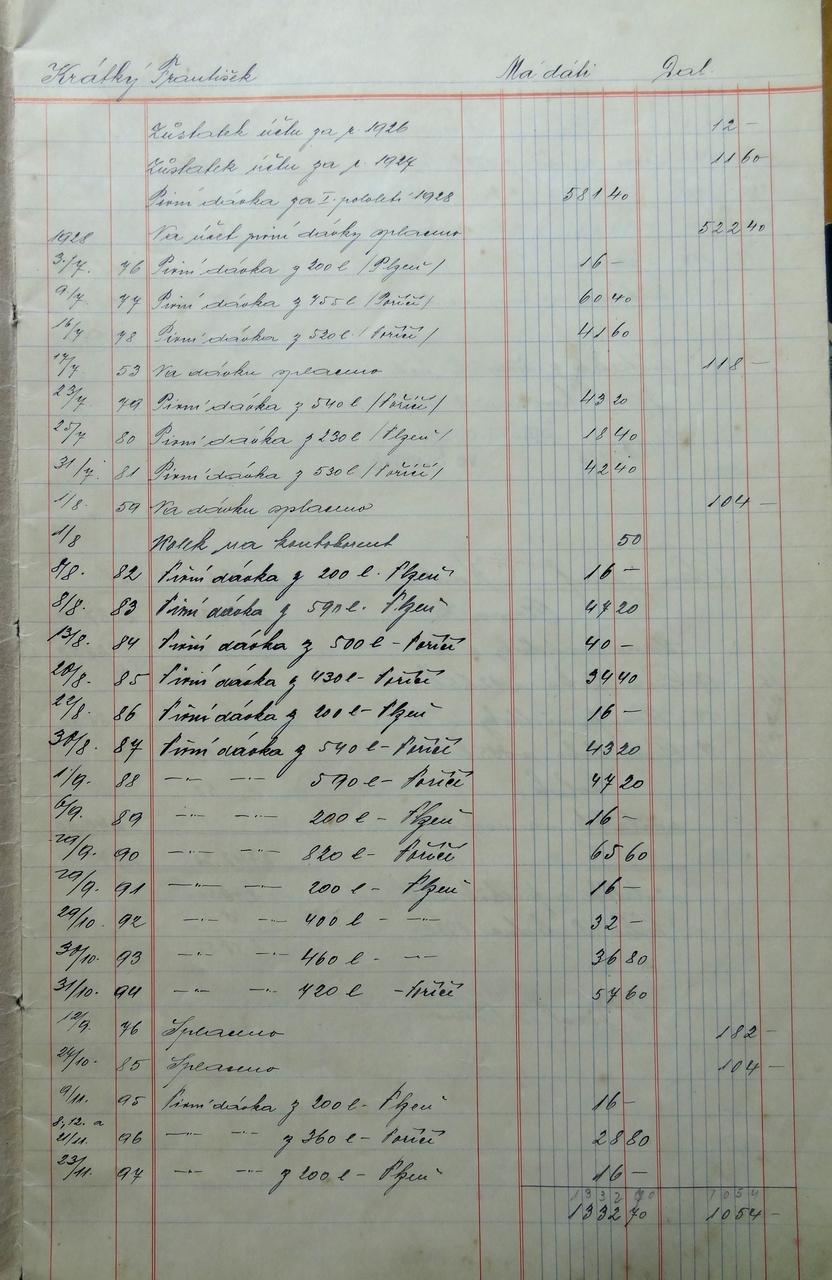 Krátký František Má dáti Dal
Zůstatek účtu za r. 1926 12 —
Zůstatek účtu za r. 1927 11 60
Pivní dávka za I. pololetí 1928 581 40
1928 Na účet pivní dávky splaceno 522 40
3./7. 76 Pivní dávka z 200 l /Plzeň/ 16 —
9/7 77 Pivní dávka z 755 l /Poříčí/ 60 40
16/7 78 Pivní dávka z 520 l /Poříčí/ 41 60
17/7 53 Na dávku splaceno 118 —
23/7 79 Pivní dávka z 540 l /Poříčí/ 43 20
25/7 80 Pivní dávka z 230 l /Plzeň/ 18 40
31/7. 81 Pivní dávka z 530 l /Poříčí/ 42 40
1/8. 59 Na dávku splaceno 104 —
1/8 Kolek na kontokorent 50
8/8. 82 Pivní dávka z 200 l - Plzeň 16 —
8/8. 83 Pivní dávka z 590 l - Plzeň 47 20
13/8. 84 Pivní dávka z 500 l - Poříčí 40 —
20/8. 85 Pivní dávka z 430 l - Poříčí 34 40
22/8. 86 Pivní dávka z 200 l - Plzeň 16 —
30/8. 87 Pivní dávka z 540 l - Poříčí 43 20
1/9. 88 —"— —"— 590 l - Poříčí 47 20
6/9. 89 —"— —"— 200 l - Plzeň 16 —
29/9. 90 —"— —"— 820 l - Poříčí 65 60
29/9. 91 —"— —"— 200 l - Plzeň 16 —
29/10. 92 —"— —"— 400 l - —"— 32 —
30/10. 93 —"— —"— 460 l - —"— 36 80
31/10. 94 —"— —"— 720 l - Poříčí 57 60
12/9. 76 Splaceno 182 —
24/10. 85 Splaceno 104 —
9/11. 95 Pivní dávka z 200 l - Plzeň 16 —
8./12. a
21/11. 96 —"— —"— z 360 l - Poříčí 28 80
23/11. 97 —"— —"— z 200 l - Plzeň 16 —
1332 70 1054
1332 70 1054 —